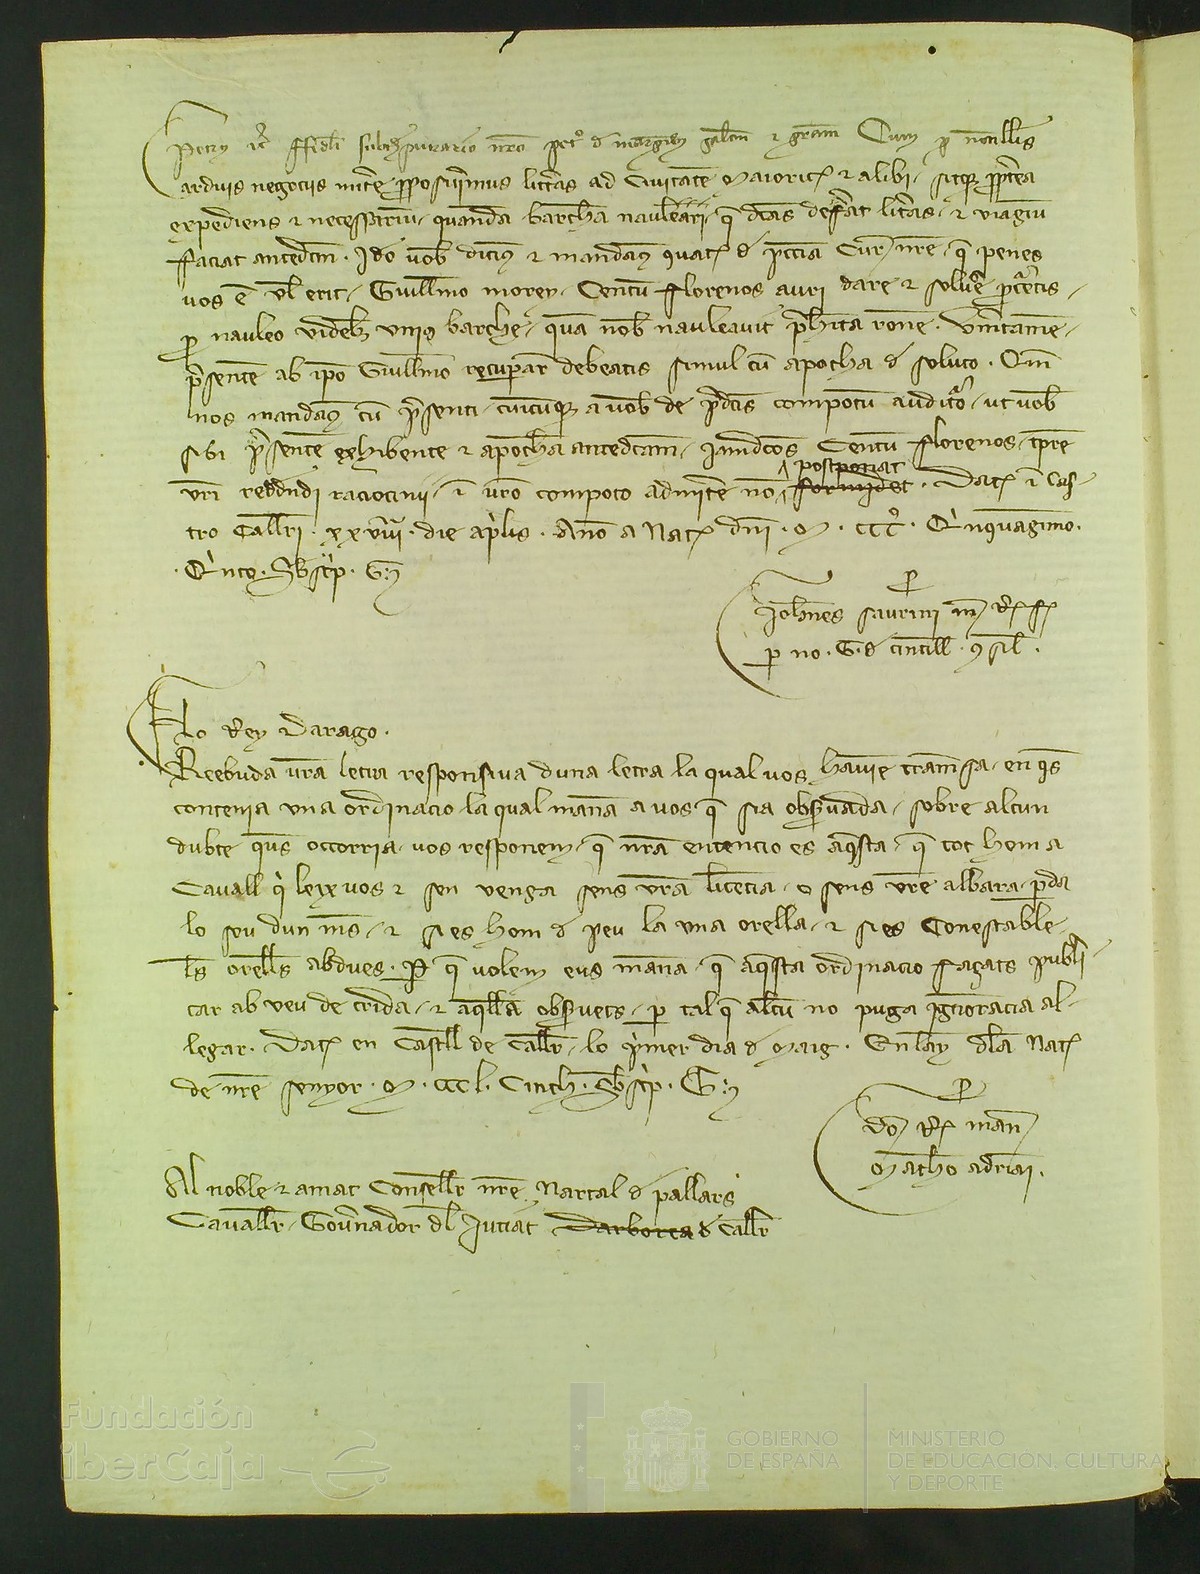 Petrus etc fideli subthesaurario nro Petro de margens salutem et gram Cum pro nonnullis
arduis negociis mittere proposuerimus litteras ad Civitate Maioric et alibi sitque propterea
expediens et necessarium quandam barcham nauleari que dictas deferat litteras et viagium
faciat antedictum Ideo vobis dicimus et mandamus quatenus de peccunia Curie nre que penes
vos est vel erit Guillmo morey Centum florenos auri dare et solvere procuretis
pro nauleo videlicet unius barche quam nobis nauleavit prehabita ratione Veruntamen
presentem ab ipso Guillmo recuperare debeatis simul cum apocha de soluto Qm
nos mandamus cum presenti cuicumque a vobis de predictis compotum audituro ut vobis
sibi presentem exhibente et apocham antedictam iamdictos Centum florenos tempore
vri reddendi raciocinii in vro compoto admittere non postponat Dat in Cas-
tro Callri xxviiii die aprilis Anno a Nat dni M CCC Quinquagesimo
Quinto Subscrip G
Johannes Saurini mand Reg fact
per no G de cintill consil
Lo Rey Darago
Reebuda vra letra responsiva duna letra la qual vos haviem tramesa en ques
contenia una ordinacio la qual manam a vos que sia observada sobre alcun
dubte queus occorria vos responem que nra entencio es aquesta que tot hom a
Cavall qui leix vos et sen venga sens vra licencia o sens vre albara perda
lo sou dun mes et si es hom de peu la una orella et si es Conestable
les orelles abdues Per que volem eus manam que aquesta ordinacio fagats publi-
car ab veu de crida et aquella observets per tal que alcun no puga ignorancia al-
legar Dat en Castell de Caller lo primer dia de Maig En lany dela Nat
de nre senyor M CCC L Cinch Subscrip G
dom Reg mand
Matheo adriani
Al noble et amat Conseller nre Nartal de pallars
Cavaller Governador del Jutiat Darborea de Caller
Fundación
iberCaja
GOBIERNO
DE ESPAÑA
MINISTERIO
DE EDUCACIÓN, CULTURA
Y DEPORTE